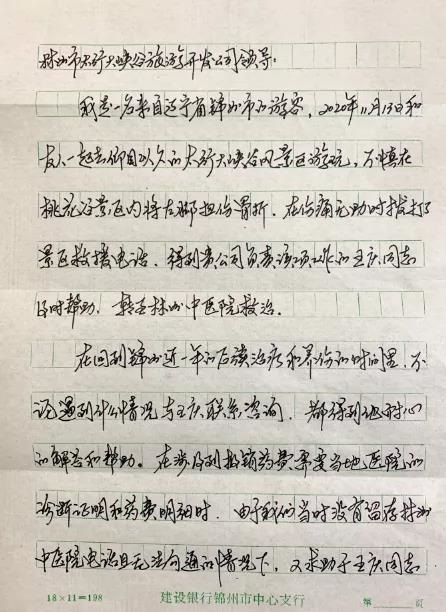 林州市太行大峡谷旅游开发公司领导:
我是一名来自辽宁省锦州市的游客,2020年11月13日和
友人一起去仰目以久的太行大峡谷风景区游玩,不慎在
桃花谷景区内将左脚扭伤冒折。在伤痛无助时拨打了
景区救援电话,得到贵公司负责该项工作的王庆同志
及时帮助,转至林州中医院救治。
在回到锦州近一年的后续治疗和养伤的时间里,不
论遇到什么情况与王庆联系咨询,都得到他耐心
的解答和帮助。在涉及到报销药费需要当地医院的
诊断证明和药费明细时,由于我们当时没有留存林州
中医院电话且无法沟通的情况下,又求助于王庆同志
18×11=198 建设银行锦州市中心支行 第 页